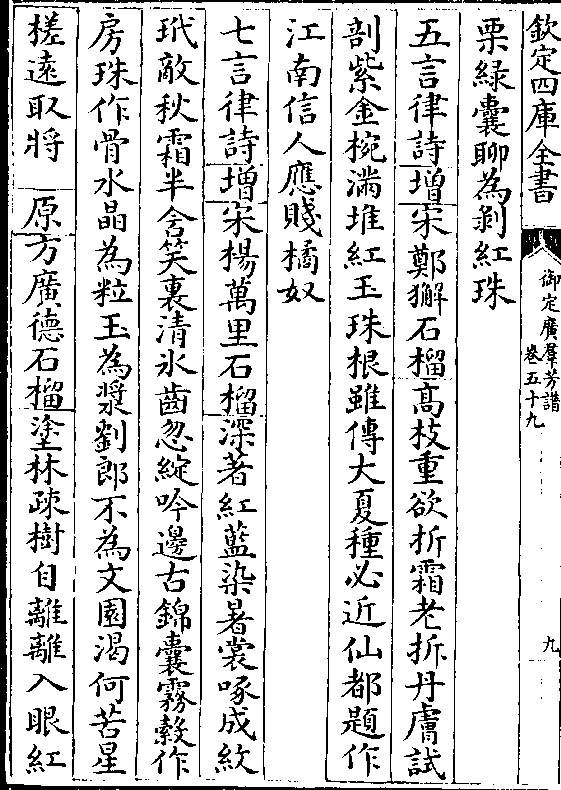 欽定四庫全書
御定廣羣芳譜
卷五十九
九
栗緑囊聊為剝紅珠
五言律詩增宋鄭獬石榴髙枝重欲折霜老拆丹膚試
剖紫金椀滿堆紅玉珠根雖傳大夏種必近仙都題作
江南信人應賤橘奴
七言律詩增宋楊萬里石榴深著紅藍染暑裳啄成紋
玳敵秋霜半含笑裏清氷齒忽綻吟邊古錦囊霧縠作
房珠作骨水晶為粒玉為漿劉郎不為文園渴何苦星
槎遠取將 原方廣德石榴塗林疎樹自離離入眼紅